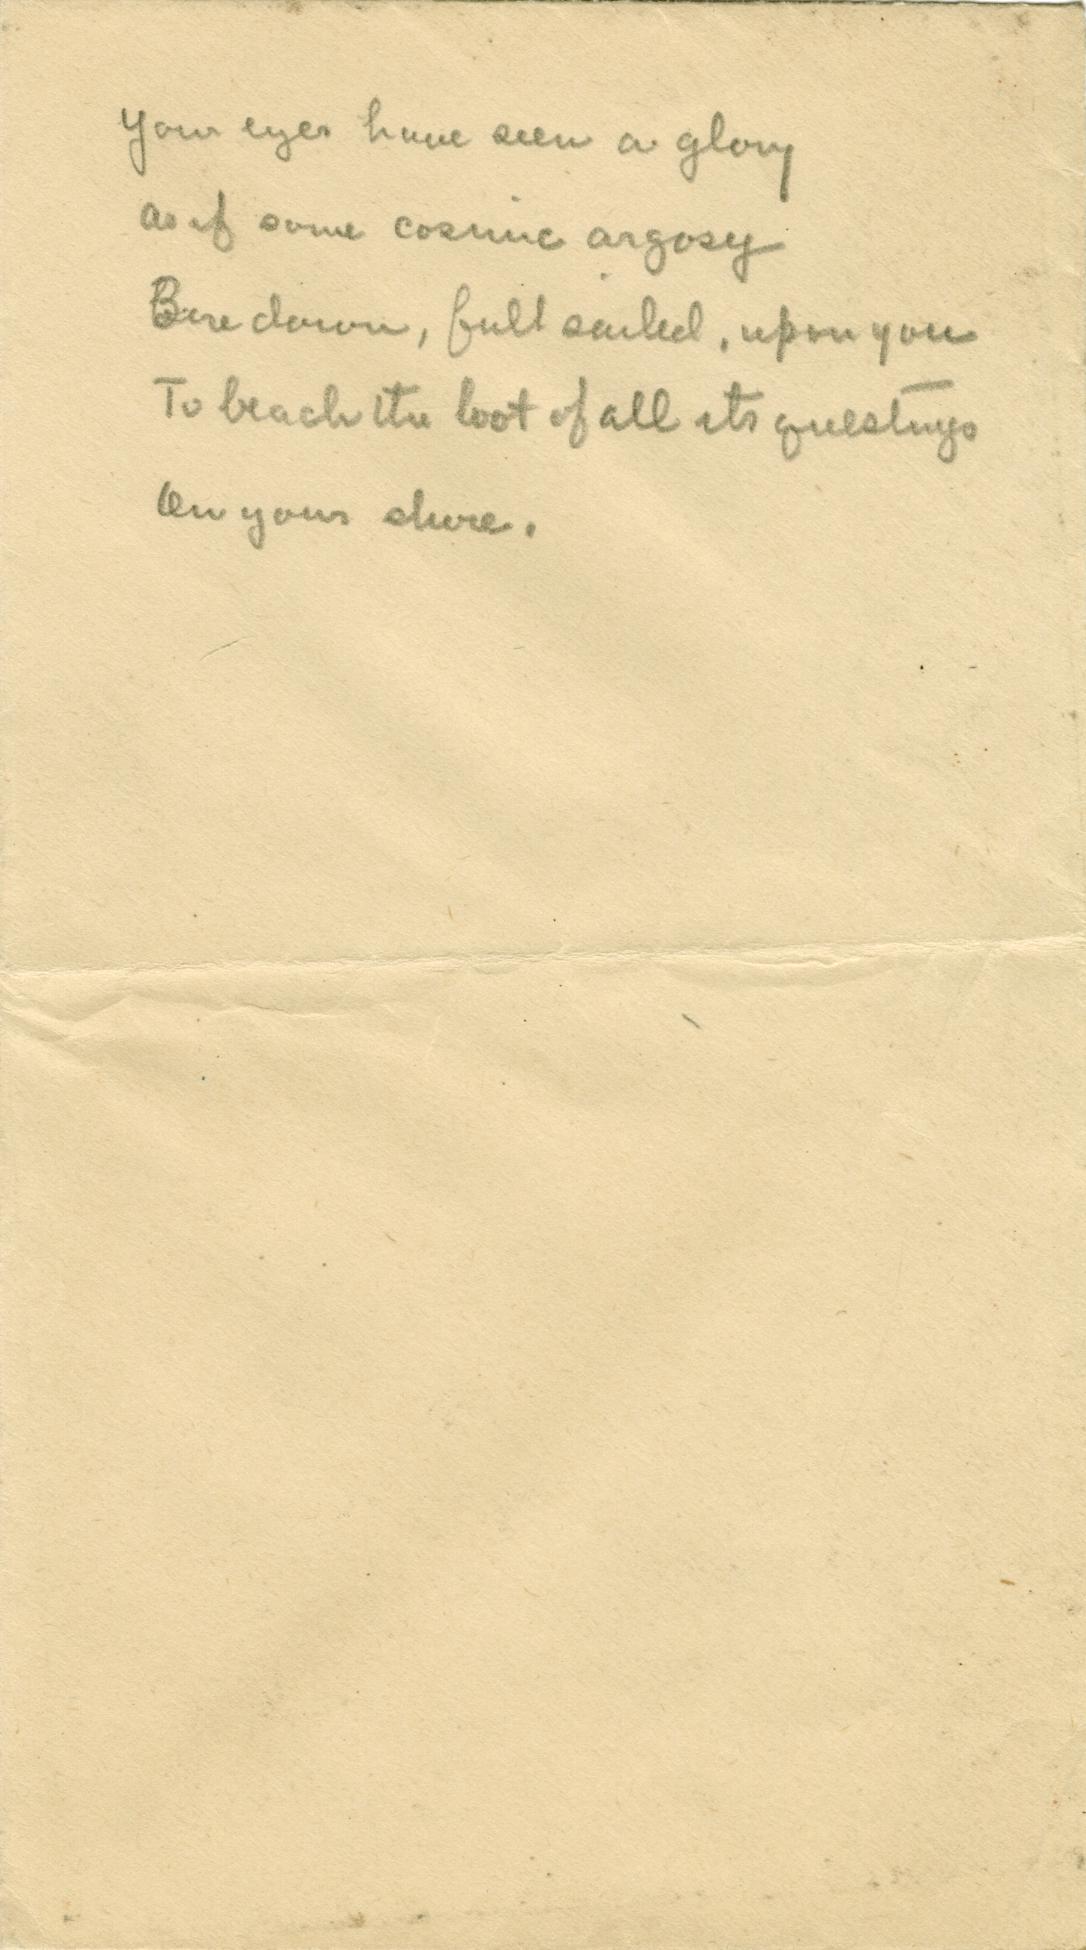 Your eyes have seen a glory
As if some cosmic argosy
Bore down, full sailed, upon you
To beach the loot of all its questings
On your shore.